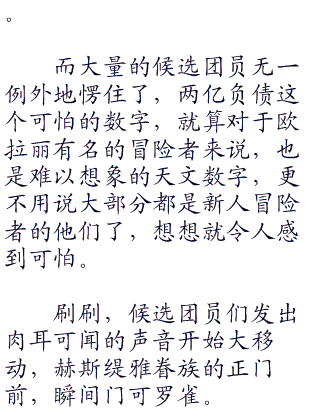 。
而大量的候选团员无一
例外地愣住了，两亿负债这
个可怕的数字，就算对于欧
拉丽有名的冒险者来说，也
是难以想象的天文数字，更
不用说大部分都是新人冒险
者的他们了，想想就令人感
到可怕。
刷刷，候选团员们发出
肉耳可闻的声音开始大移
动，赫斯缇雅眷族的正门
前，瞬间门可罗雀。